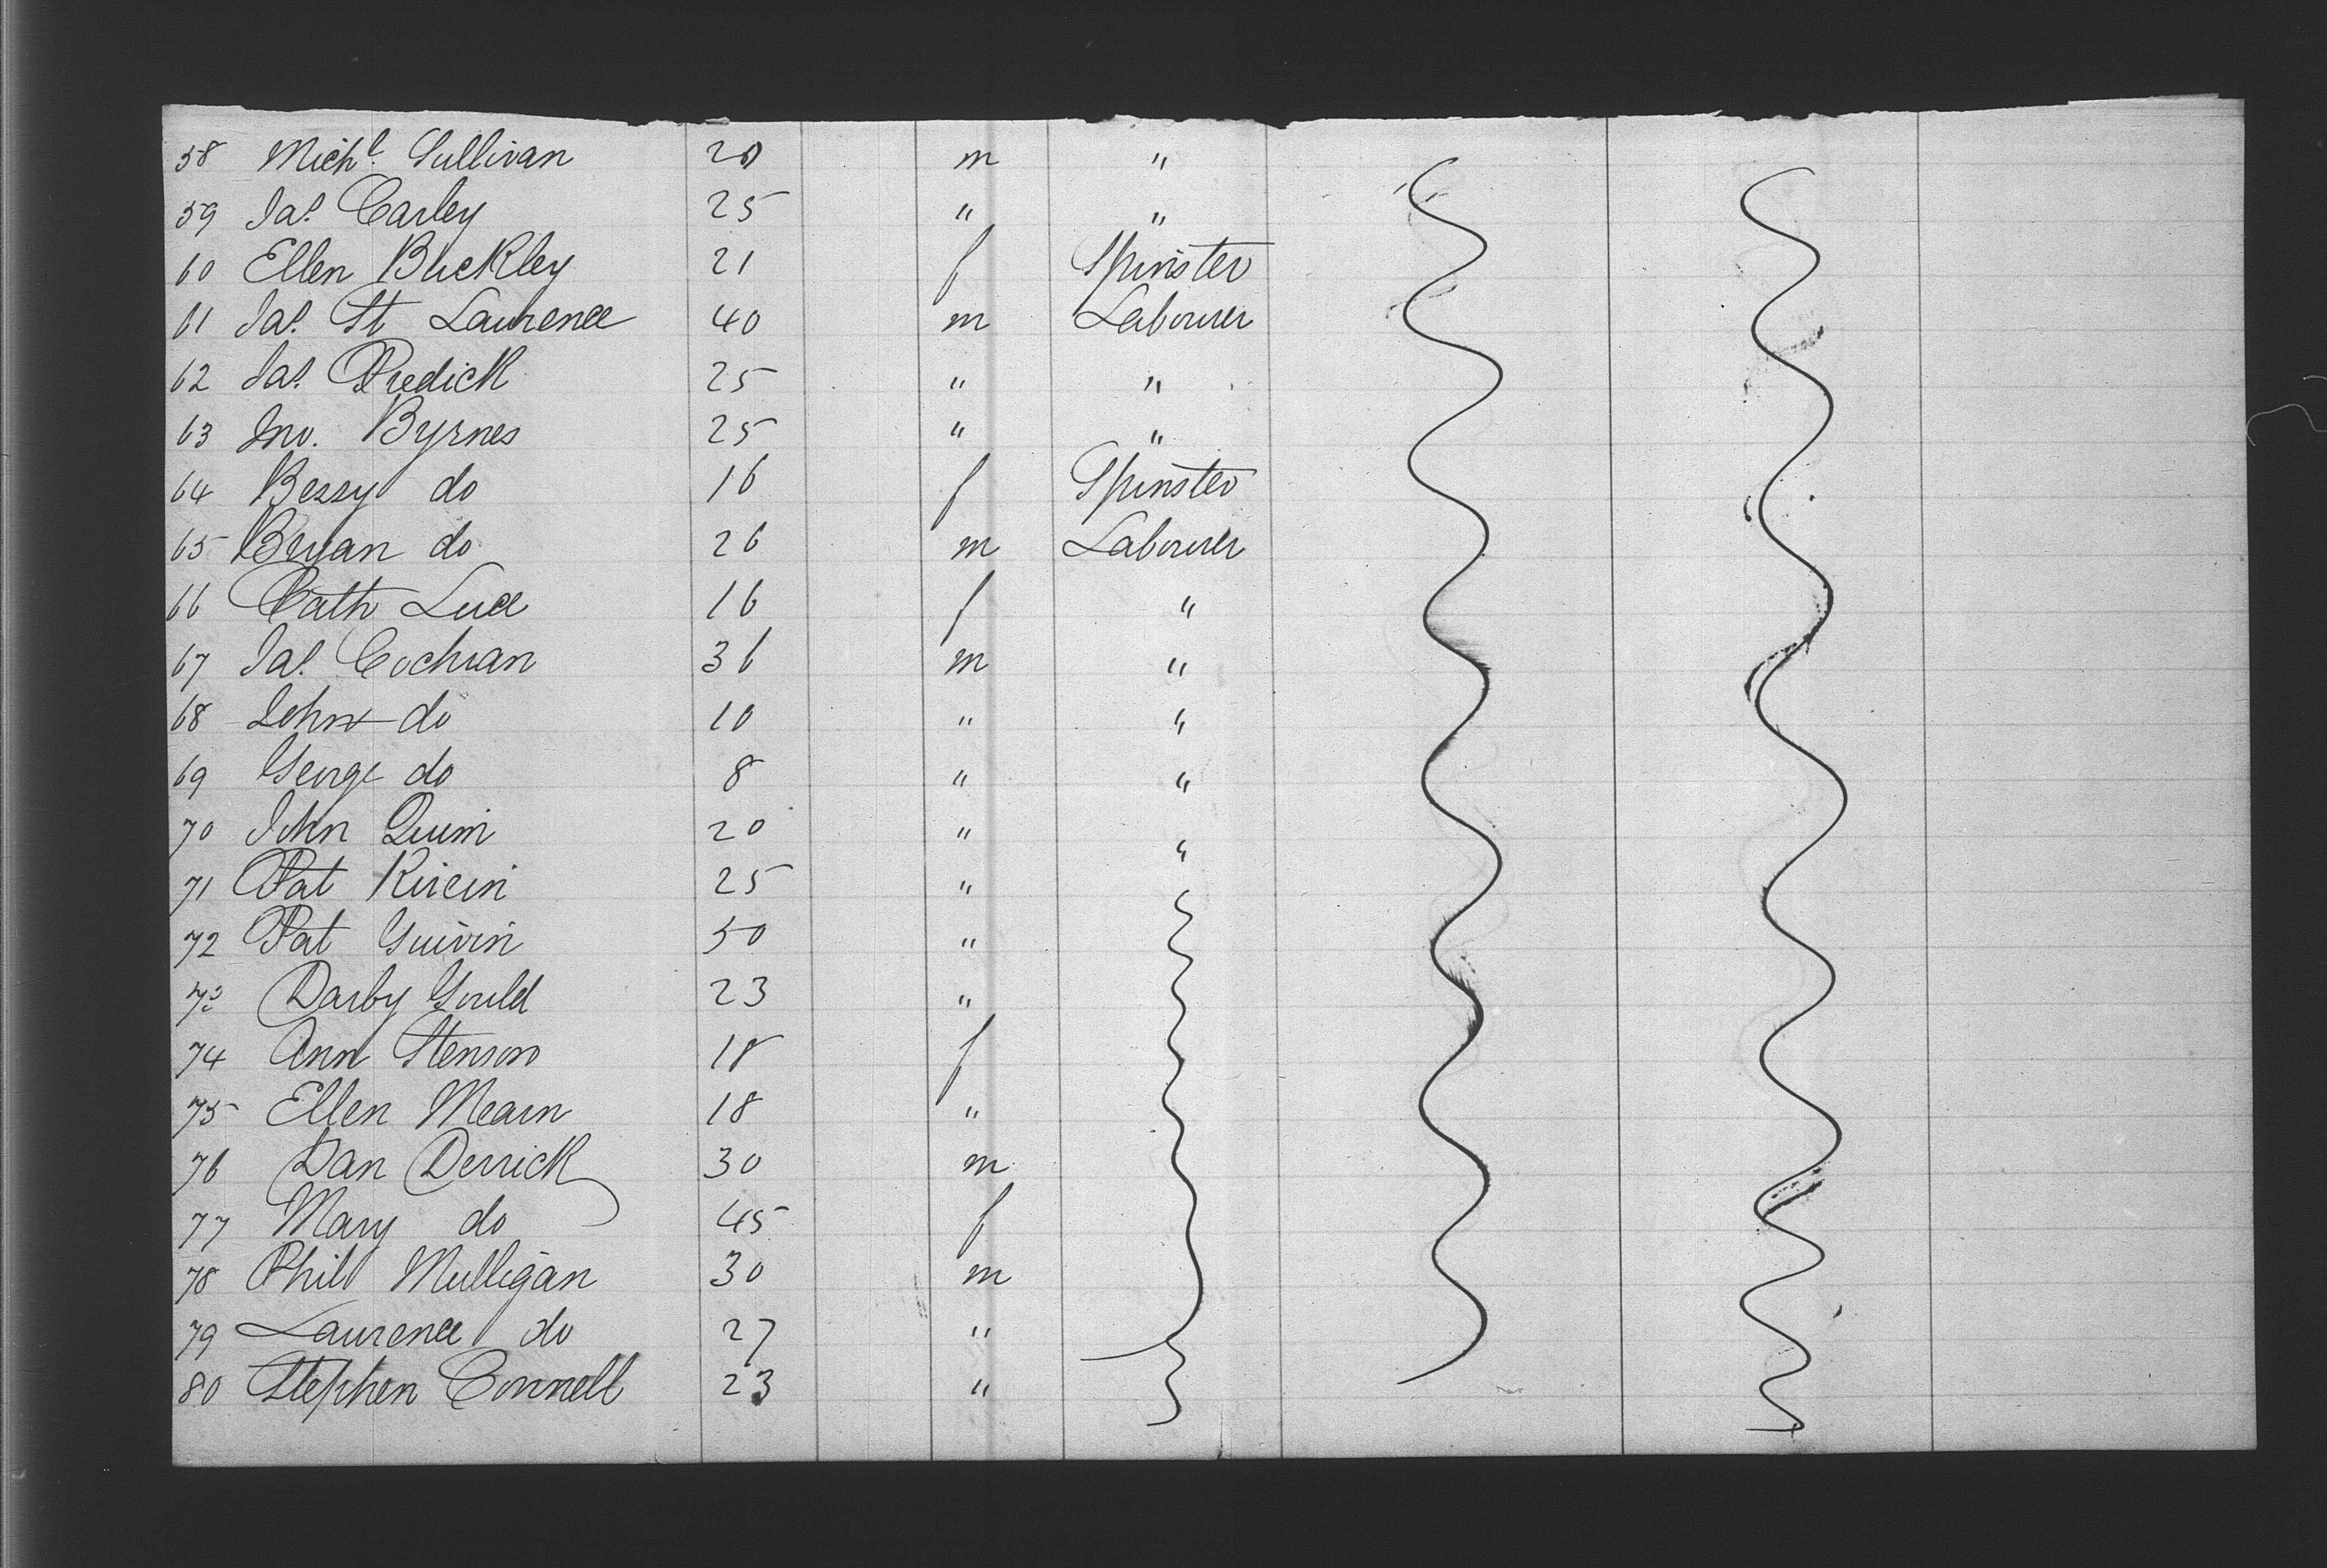 58 Michl. Sullivan 20 m "
59 Jas. Carley 25 " "
60 Ellen Buckley 21 f Spinster
61 Jas. St Laurence 40 m Labourer
62 Jas. Predick 25 " "
63 Jno. Byrnes 25 " "
64 Bessy do 16 f Spinster
65 Bryan do 26 m Labourer
66 Cath Luce 16 f "
67 Jas. Cochran 36 m "
68 John do 10 " "
69 George do 8 " "
70 John Quin 20 " "
71 Pat 25 "
72 Pat 50 "
73 Darby Gould 23 "
74 Ann Stenson 18 f
75 Ellen Mearn 18 "
76 Dan Derrick 30 m
77 Mary do 45 f
78 Phil Mulligan 30 m
79 Laurence do 27 "
80 Stephen Connell 23 "